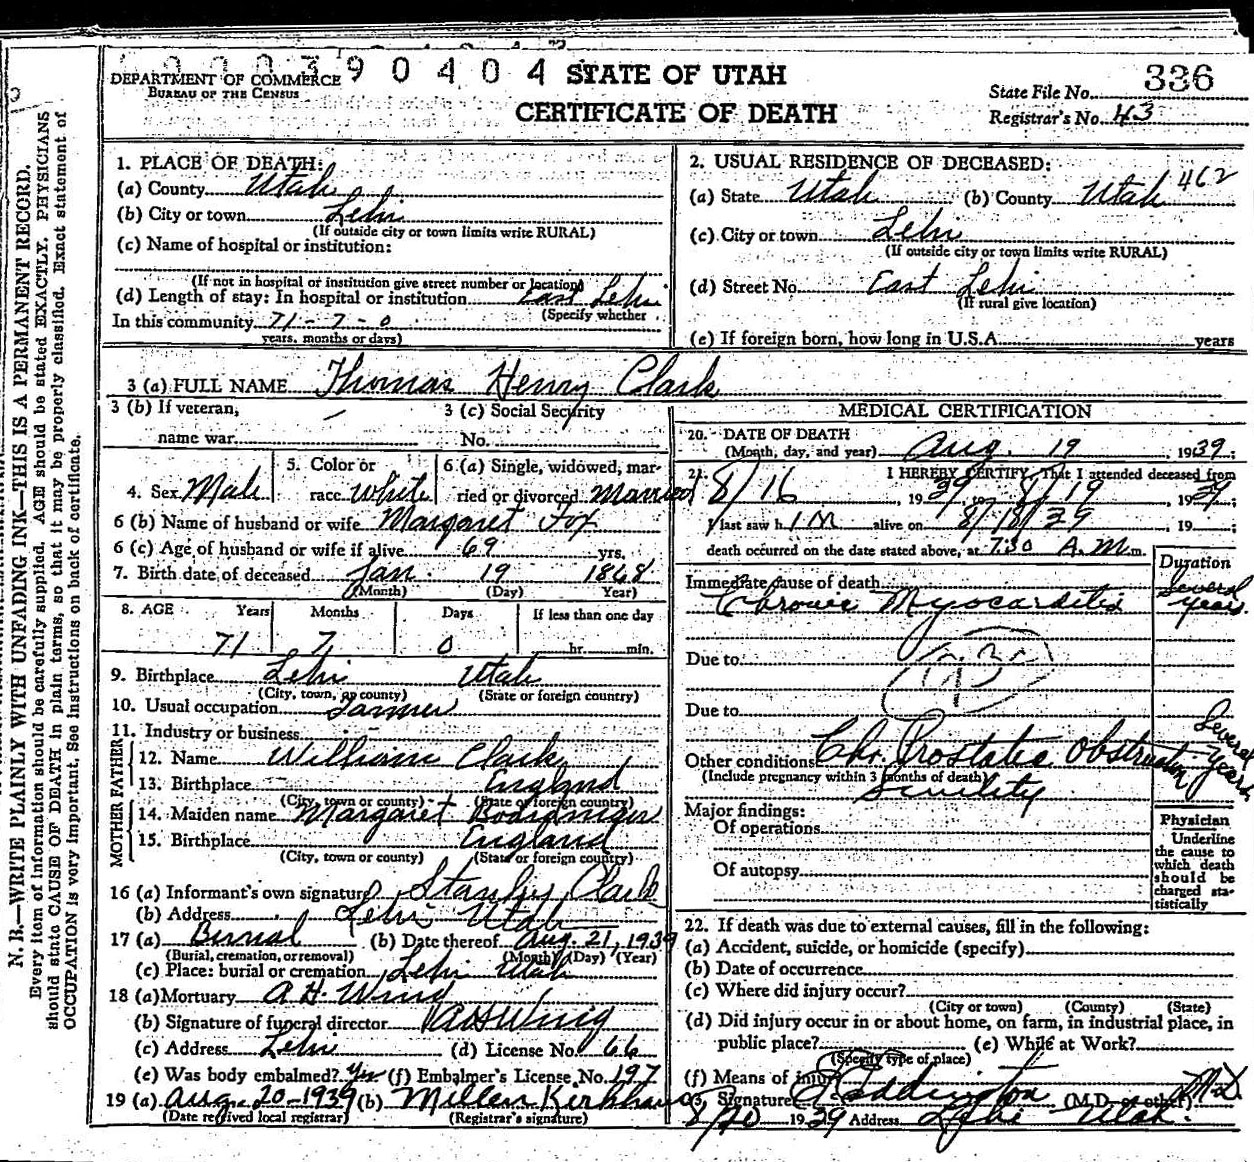 0000390404
DEPARTMENT OF COMMERCE
BUREAU OF THE CENSUS
STATE OF UTAH
CERTIFICATE OF DEATH
State File No. 336
Registrar's No. 43
1. PLACE OF DEATH:
(a) County Utah
(b) City or town Lehi
(If outside city or town limits write RURAL)
(c) Name of hospital or institution:
(If not in hospital or institution give street number or location)
(d) Length of stay: In hospital or institution East Lehi
(Specify whether
In this community 71-7-0
years, months or days)
2. USUAL RESIDENCE OF DECEASED:
462
(a) State Utah (b) County Utah
(c) City or town Lehi
(If outside city or town limits write RURAL)
(d) Street No. East Lehi
(If rural give location)
(e) If foreign born, how long in U.S.A. years
3 (a) FULL NAME Thomas Henry Clark
3 (b) If veteran, name war. —
3 (c) Social Security No.
4. Sex Male 5. Color or race White 6 (a) Single, widowed, married or divorced Married
6 (b) Name of husband or wife Margaret Fox
6 (c) Age of husband or wife if alive 69 yrs.
7. Birth date of deceased Jan. 19 1868
(Month) (Day) Year)
8. AGE Years Months Days If less than one day
71 7 0 hr. min.
9. Birthplace Lehi Utah
(City, town, or county) (State or foreign country)
10. Usual occupation Farmer
11. Industry or business
FATHER
12. Name William Clark
13. Birthplace England
(City, town or county) (State or foreign country)
MOTHER
14. Maiden name Margaret
15. Birthplace England
(City, town or county) (State or foreign country)
16 (a) Informant's own signature Stanley Clark
(b) Address Lehi Utah
17 (a) Burial (b) Date thereof Aug. 21, 1939
(Burial, cremation, or removal) (Month) (Day) (Year)
(c) Place: burial or cremation Lehi Utah
18 (a) Mortuary A.H. Wing
(b) Signature of funeral director A H Wing
(c) Address Lehi (d) License No. 66
(e) Was body embalmed? Yes (f) Embalmer's License No. 197
19 (a) Aug. 20-1939 (b)
(Date received local registrar) (Registrar's signature)
MEDICAL CERTIFICATION
20. DATE OF DEATH
(Month, day, and year) Aug. 19, 1939;
21. I HEREBY CERTIFY, That I attended deceased from
8/16 1939 to 8/19 1939;
I last saw him alive on 8/18/39, 19 ;
death occurred on the date stated above, at 7:30 A.M. m.
Duration
Immediate cause of death
Chronic Myocarditis Several years
Due to
Due to
Other conditions Chr. Prostatic Obstruction Several years
(Include pregnancy within 3 months of death)
Senility
Major findings:
Of operations
Of autopsy
Physician
Underline
the cause to
which death
should be
charged sta-
tistically
22. If death was due to external causes, fill in the following:
(a) Accident, suicide, or homicide (specify)
(b) Date of occurrence
(c) Where did injury occur?
(City or town) (County) (State)
(d) Did injury occur in or about home, on farm, in industrial place, in
public place? (e) While at Work?
(Specify type of place)
(f) Means of injury
23. Signature Eddington M.D. (M.D. or other)
8/20 1939 Address Lehi Utah.
N. B.—WRITE PLAINLY WITH UNFADING INK—THIS IS A PERMANENT RECORD.
Every item of information should be carefully supplied. AGE should be stated EXACTLY. PHYSICIANS
should state CAUSE OF DEATH in plain terms, so that it may be properly classified. Exact statement of
OCCUPATION is very important. See instructions on back of certificate.